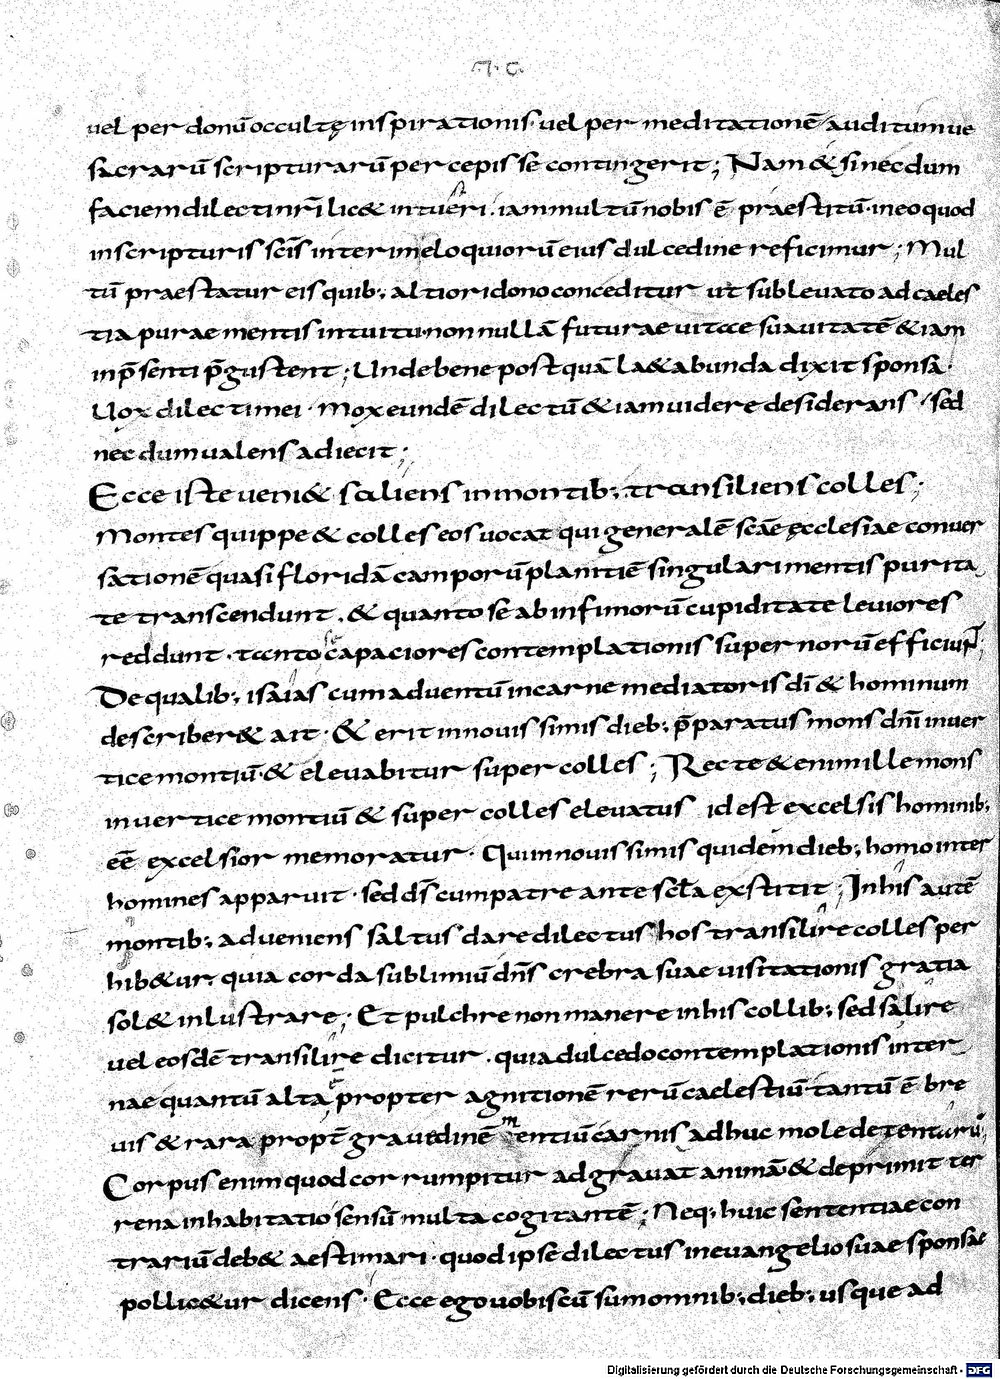 uel per donū occultę inspirationis· uel per meditationē auditumue
sacrarū scripturarū percepisse contingerit; Nam & si necdum
faciem dilecti nr̄i lic& intueri. iam multū nobis ē praestitū· in eo quod
in scripturis sc̄is interim eloquiorū eius dulcedine reficimur; Mul
tū praestatur eis quib; altiori dono conceditur ut sublevato ad caeles
tia purae mentis intuitu· non nullā futurae vitae suavitatē &iam
inp̄senti p̄gustent; Unde bene postquā la&abunda dixit sponsa·
Uox dilecti mei· mox eundē dilectū &iam uidere desiderans· sed
nec dum ualens adiecit;
Ecce iste ueni& saliens in montib; transiliens colles;
Montes quippe & colles eos vocat qui generalē sc̄ae ęcclesiae conver
sationē quasi floridā camporū planitiē singulari mentis purita
te transcendunt. & quanto se ab infimorū cupiditate leviores
reddunt· tanto capaciores contemplationis supernorū efficiunt;
De qualib; isaias cum adventū in carne mediatoris dī & hominum
describer& ait· & erit in novissimis dieb; p̄paratus mons dn̄i in ver
tice montiū· & elevabitur super colles; Recte &enim ille mons
in vertice montiū & super colles elevatus idest excelsis hominib;
eē excelsior memoratur· Qui in novissimis quidem dieb; homo inter
homines apparuit· sed ds̄ cum patre ante sc̄la exstitit; In his autē
montib; adveniens saltus dare dilectus hos transilire colles per
hib&ur· quia corda sublimiū dn̄s crebra suae visitationis gratia
sol& inlustrare; Et pulchre non manere in his collib; sed salire
vel eosdē transilire dicitur. quia dulcedo contemplationis inter
nae quantū alta ē propter agnitionē rerū caelestiū· tantū ē bre
vis & rara propt̄ gravedinē mentiū carnis adhuc mole detentarū;
Corpus enim quod corrumpitur adgravat animā & deprimit ter
rena inhabitatio sensū multa cogitantē; Neq; huic sententiae con
trariū deb& aestimari· quod ipse dilectus in evangelio suae sponsae
pollic&ur dicens· Ecce ego vobiscū sum omnib; dieb; usque ad
Digitalisierung gefördert durch die Deutsche Forschungsgemeinschaft - DFG